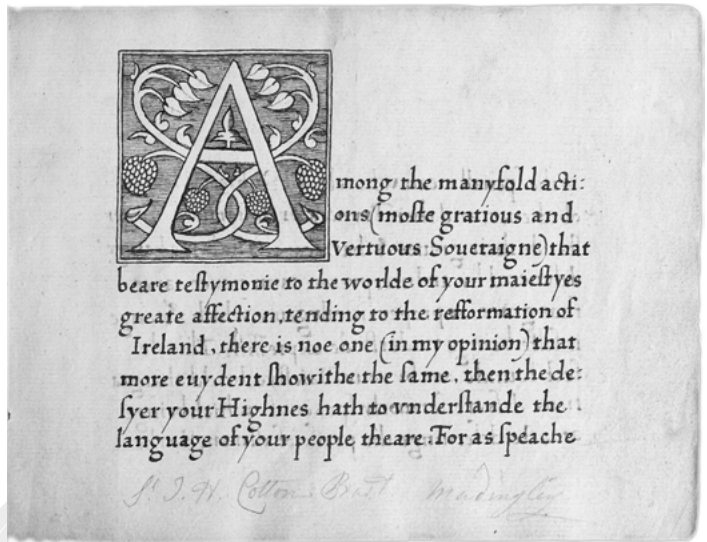 Among the manyfold acti:
ons (moste gratious and
Vertuous Soueraigne) that
beare testymonie to the worlde of your maiestyes
greate affection, tending to the refformation of
Ireland, there is noe one (in my opinion) that
more euydent showithe the same, then the de:
syer your Highnes hath to vnderstande the
language of your people theare. For as speache
Sr. J. H. Cotton Bart Madingley